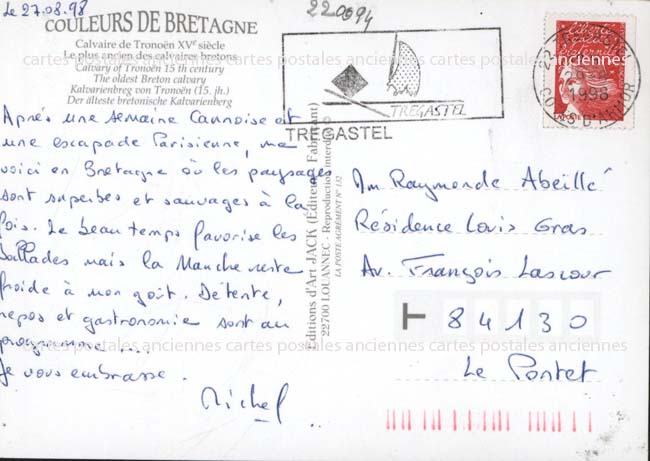 Le 27.08.98
COULEURS DE BRETAGNE
Calvaire de Tronoën XVe siècle
Le plus ancien des calvaires bretons
Calvary of Tronoën 15 th century
The oldest Breton calvary
Kalvarienbreg von Tronoën (15. jh.)
Der älteste bretonische Kalvarienberg
Après une semaine Cannoise et
une escapade Parisienne, me
voici en Bretagne où les paysages
sont superbes et sauvages à la
fois. Le beau temps favorise les
ballades mais la Manche reste
froide à mon goût. Détente,
repos et gastronomie sont au
programme ...
Je vous embrasse.
Michel
220894
TREGASTEL
TREGASTEL
Editions d'Art JACK (Éditeur - Fabricant)
22700 LOUANNEC - Reproduction interdite
LA POSTE AGREMENT N° 132
22 TREGASTEL
1998
COTES D'ARMOR
Liberté
LA POSTE
Mm Raymonde Abeillé
Résidence Louis Gras
Av. François Lascour
84130
Le Pontet
cartes postales anciennes cartes postales anciennes cartes postales anciennes
cartes postales anciennes cartes postales anciennes cartes postales anciennes
cartes postales anciennes cartes postales anciennes cartes postales anciennes